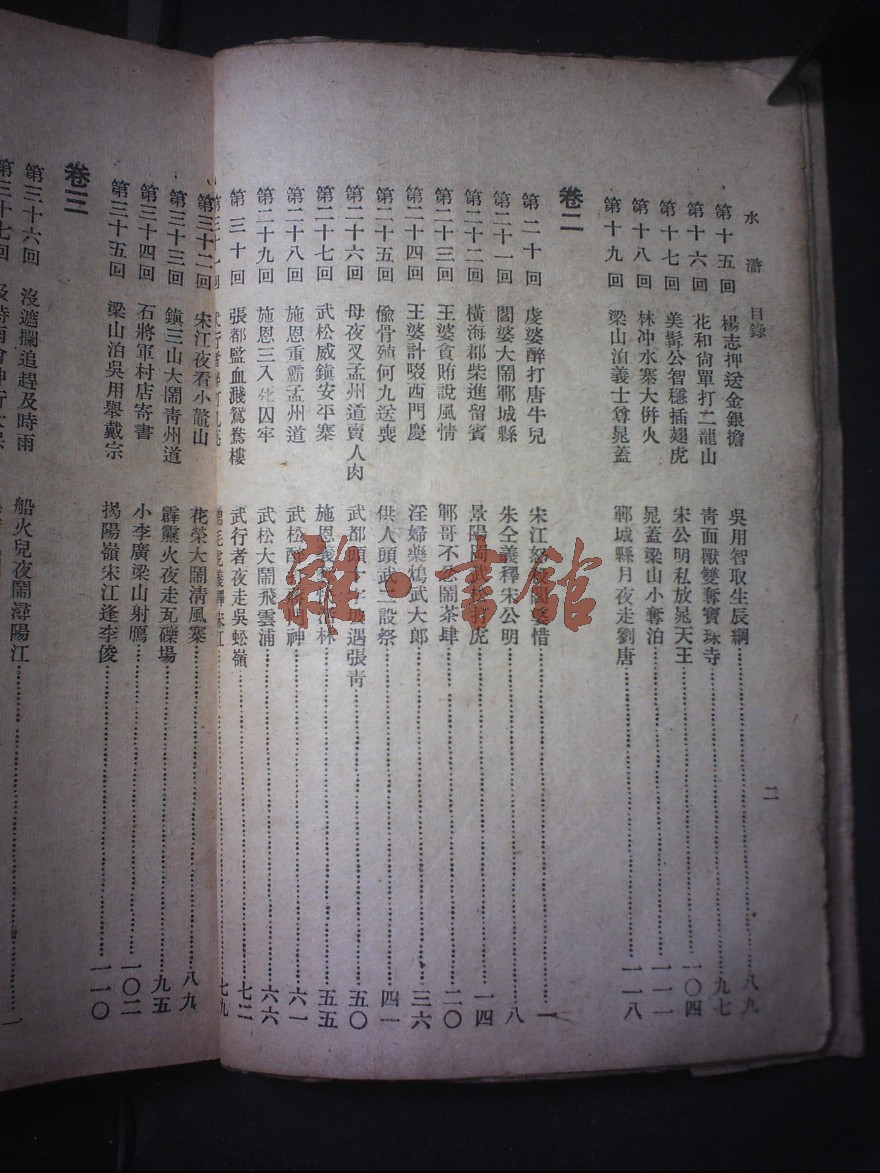 水滸 目錄
第十五回 楊志押送金銀擔 吳用智取生辰綱 八九
第十六回 花和尙單打二龍山 靑面獸雙奪寶珠寺 九七
第十七回 美髯公智穩插翅虎 宋公明私放晁天王 一〇四
第十八回 林冲水寨大併火 晁蓋梁山小奪泊 一一一
第十九回 梁山泊義士尊晁蓋 鄆城縣月夜走劉唐 一一八
卷二
第二十回 虔婆醉打唐牛兒 宋江怒殺閻婆惜 一
第二十一回 閻婆大鬧鄆城縣 朱仝義釋宋公明 八
第二十二回 橫海郡柴進留賓 景陽岡武松打虎 一四
第二十三回 王婆貪賄說風情 鄆哥不忿鬧茶肆 二〇
第二十四回 王婆計啜西門慶 淫婦藥鴆武大郎 三六
第二十五回 偸骨殖何九送喪 供人頭武二設祭 四一
第二十六回 母夜叉孟州道賣人肉 武都頭十字坡遇張靑 五〇
第二十七回 武松威鎭安平寨 施恩義 林 五五
第二十八回 施恩重霸孟州道 武松醉 門神 六一
第二十九回 施恩三入死囚牢 武松大鬧飛雲浦 六六
第三十回 張都監血濺鴛鴦樓 武行者夜走吳蚣嶺 七二
七九
第三十二回 宋江夜看小鼇山 花榮大鬧淸風寨 八九
第三十三回 鎭三山大鬧靑州道 霹靂火夜走瓦礫場 九五
第三十四回 石將軍村店寄書 小李廣梁山射鴈 一〇二
第三十五回 梁山泊吳用舉戴宗 揭陽嶺宋江逢李俊 一一〇
卷三
第三十六回 沒遮攔追趕及時雨 船火兒夜鬧潯陽江 一
第三十七回
二
雜·書館